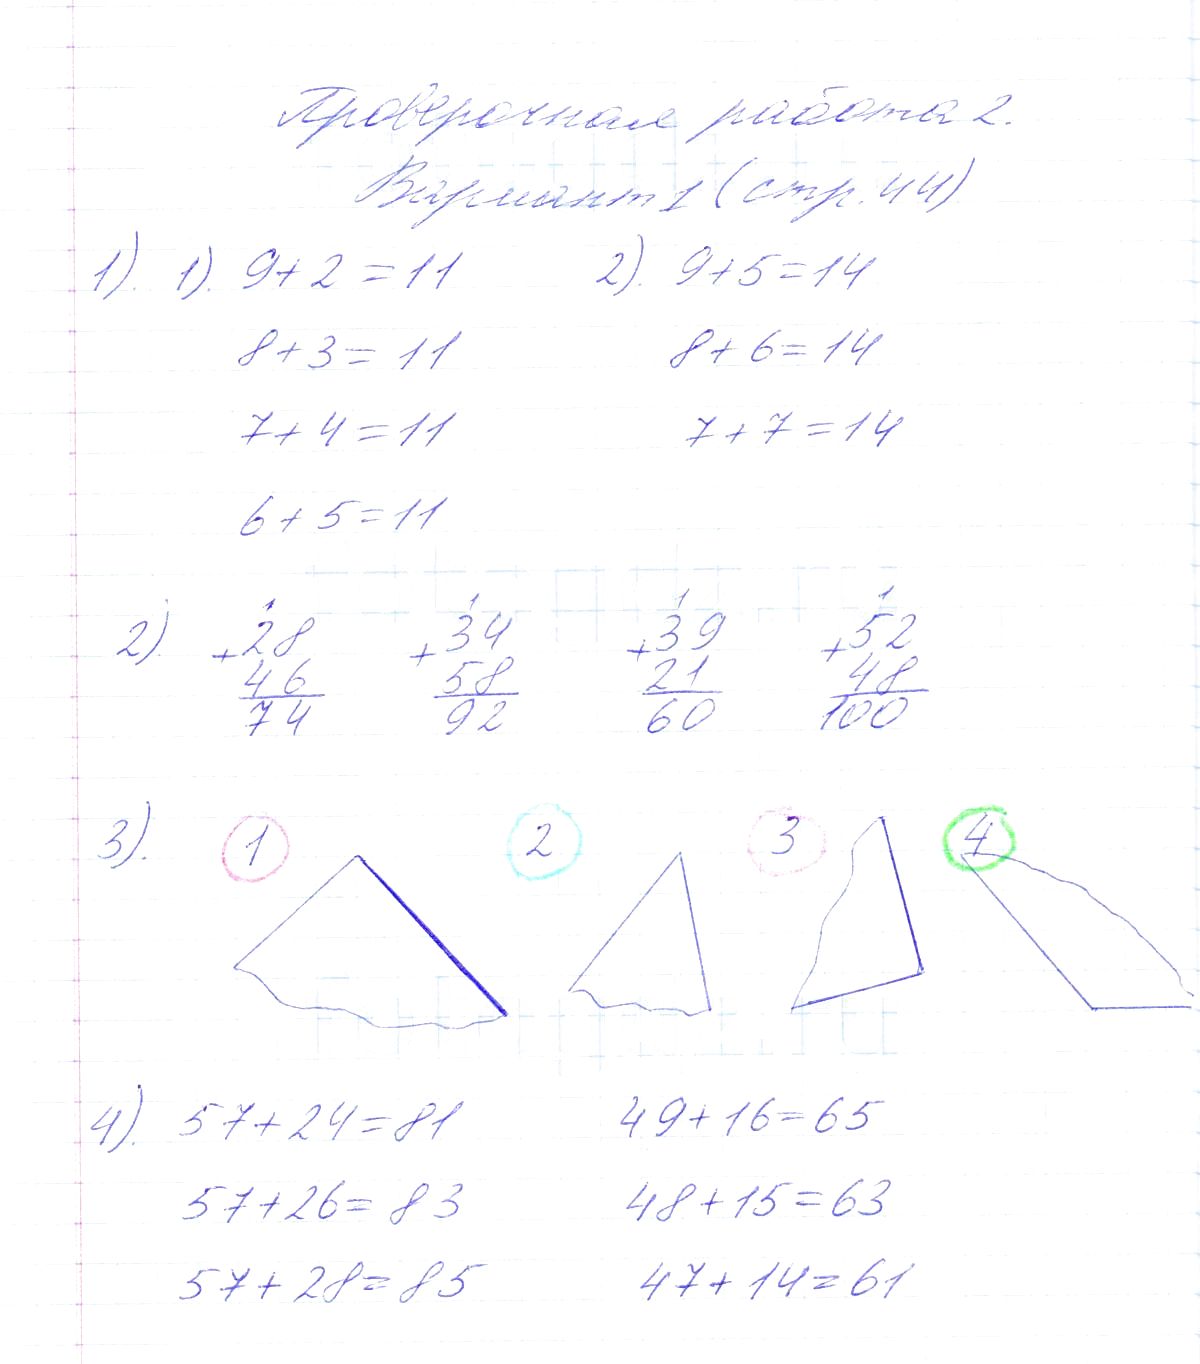 Проверочная работа 2.
Вариант 1 (стр. 44)
1). 1). 9+2=11 2). 9+5=14
8+3=11 8+6=14
7+4=11 7+7=14
6+5=11
2). 1 1 1 1
+28 +34 +39 +52
46 58 21 48
74 92 60 100
3). 1 2 3 4
4). 57+24=81 49+16=65
57+26=83 48+15=63
57+28=85 47+14=61